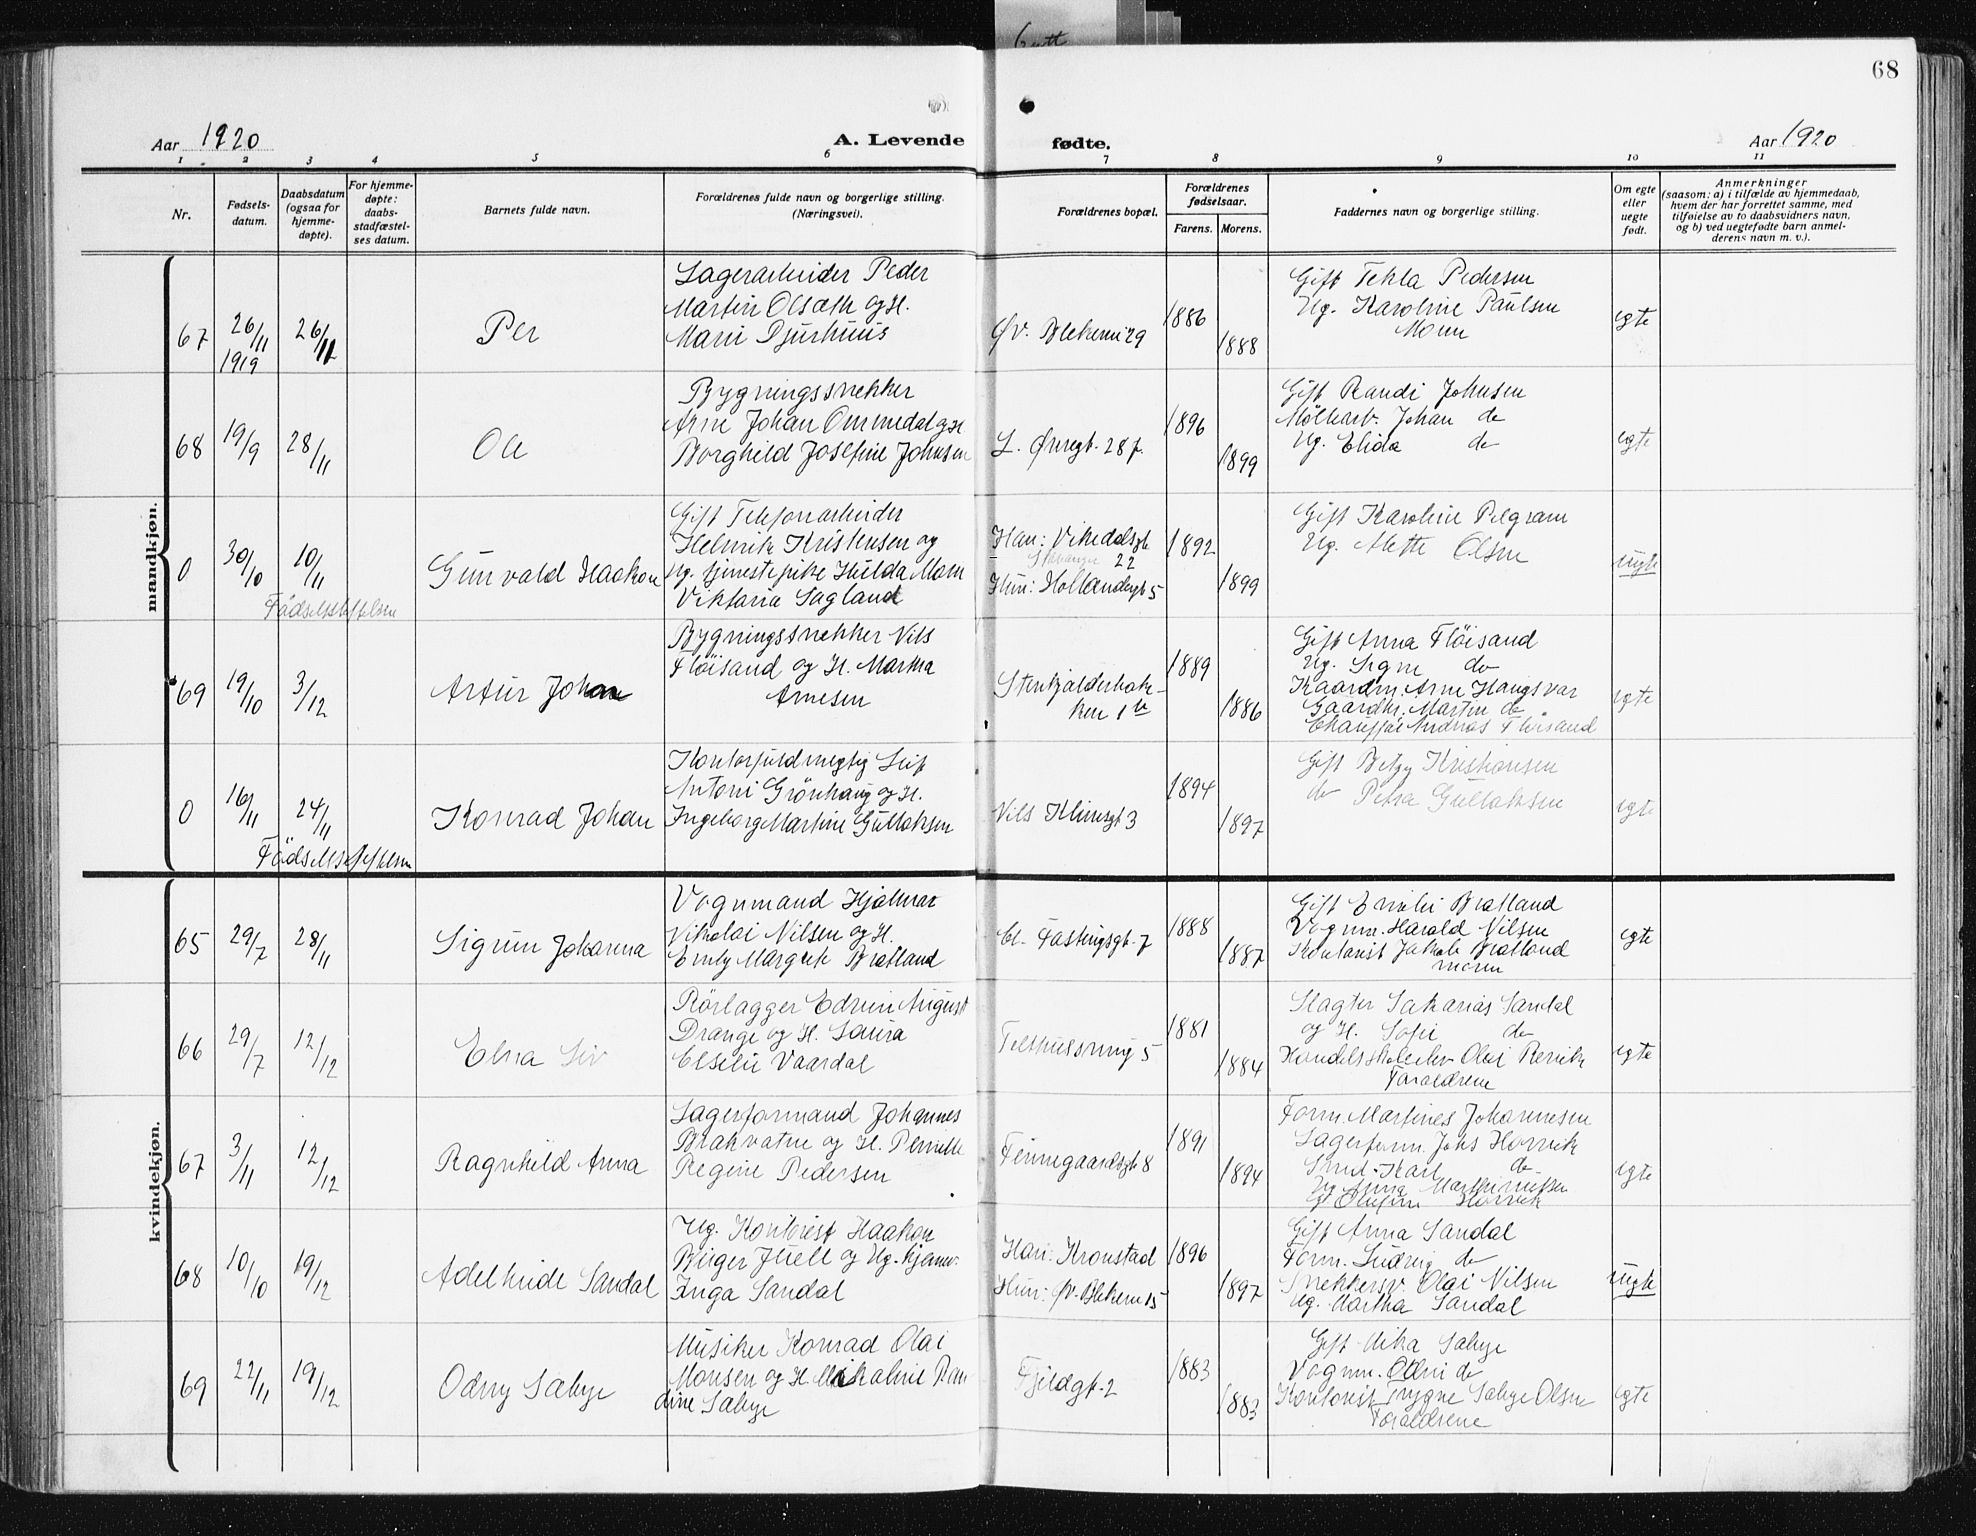 68
Aar 1920
A. Levende fødte.
Aar 1920
1 2 3 4 5 6 7 8 9 10 11
Nr.
Fødsels-
datum.
Daabsdatum
(ogsaa for
hjemme-
døpte).
For hjemme-
døpte:
daabs-
stadfæstel-
ses datum.
Barnets fulde navn.
Forældrenes fulde navn og borgerlige stilling.
(Næringsvei).
Forældrenes bopæl.
Forældrenes
fødselsaar.
Farens. Morens.
Faddernes navn og borgerlige stilling.
Om egte
eller
uegte
født.
Anmerkninger
(saasom: a) i tilfælde av hjemmedaab,
hvem der har forrettet samme, med
tilføielse av to daabsvidners navn,
og b) ved uegtefødte barn anmel-
derens navn m. v.).
mandkjøn.
67
26/11
1919
26/11
Per
Lagerarbeider Peder
Martin Olsæth og H.
Marie Djurhuus
Øv. Blekevei 29
1886
1888
Gift Tekla Pedersen
Ug. Karoline Paulsen
Moren
egte
68
19/9
28/11
Ole
Bygningssnekker
Arne Johan Ommedal og H
Borghild Josefine Johnsen
L. Øvregt. 28 f.
1896
1899
Gift Randi Johnsen
Møllearb. Johan do
Ug. Elida do
egte
0
30/10
10/11
Fødselsstiftelsen
Gunvald Haakon
Gift Telefonarbeider
Helmik Kristensen og
Ug. tjenestepike Hulda
Viktoria Sagland
Han: Vikedalsgt
Stavanger 22
Hun: Hollendergt 5
1892
1899
Gift Karoline Pilgram
Ug. Mette Olsen
uegte
69
19/10
3/12
Artur Johan
Bygningssnekker Nils
Fløisand og H. Martha
Arnesen
Stenkjelderbak-
ken 1 b
1889
1886
Gift Anna Fløisand
Ug. Signe do
Gaardm. Arne Haugsvar
Gaardbr. Martin do
Chauffør Andreas Fløisand
egte
0
16/11
24/11
Fødselsstiftelsen
Konrad Johan
Kontorfuldmegtig Leif
Antoni Grønhaug og H.
Ingeborg Martine Gullaksen
Nils Klimsgt 3
1894
1897
Gift Betzy Kristiansen
do Petra Gullaksen
egte
kvindekjøn.
65
29/7
28/11
Sigrun Johanna
Vognmand Hjalmar
Nikolai Nilsen og H.
Emly Margrete Bratland
Cl. Fastingsgt. 7
1888
1887
Gift Emilie Bratland
Vognm. Harald Nilsen
Kontorist Jakob Bratland
moren
egte
66
29/7
12/12
Elna Siv
Rørlægger Edvin August
Drange og H. Laura
Elselie Vaardal
Telthussmug 5
1881
1884
Slagter Sakarias Sandal
og H. Sofie do
Handelsskoleelev Olai Rervik
Forældrene
egte
67
3/11
12/12
Ragnhild Anna
Lagerformand Johannes
Brakvatne og H. Pernille
Regine Pedersen
Finnegaardsgt 8
1891
1894
Form. Martines Johannesen
Lagerform. Johs Horvik
Smed Karl do
Ug. Anna Marthinussen
Gt. Olufine Horvik
egte
68
10/10
19/12
Adelheide Sandal
Ug. Kontorist Haakon
Birger Juell og Ug. hjemv.
Inga Sandal
Han: Kronstad
Hun: Øv. Blekevei 15
1896
1897
Gift Anna Sandal
Form. Ludvig do
Snekkersv. Olai Nilsen
Ug. Martha Sandal
uegte
69
22/11
19/12
Odny Sæbye
Musiker Konrad Olai
Monsen og H. Mikaline Ran
dine Sæbye
Fjeldgt. 2
1883
1883
Gift Mika Sæbye
Vognm. Odin do
Kontorist Trygve Sæbye Olsen
Forældrene
egte